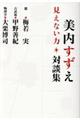 美内すずえ
見えない力 対談集
梅若 実
甲野善紀
大栗博司